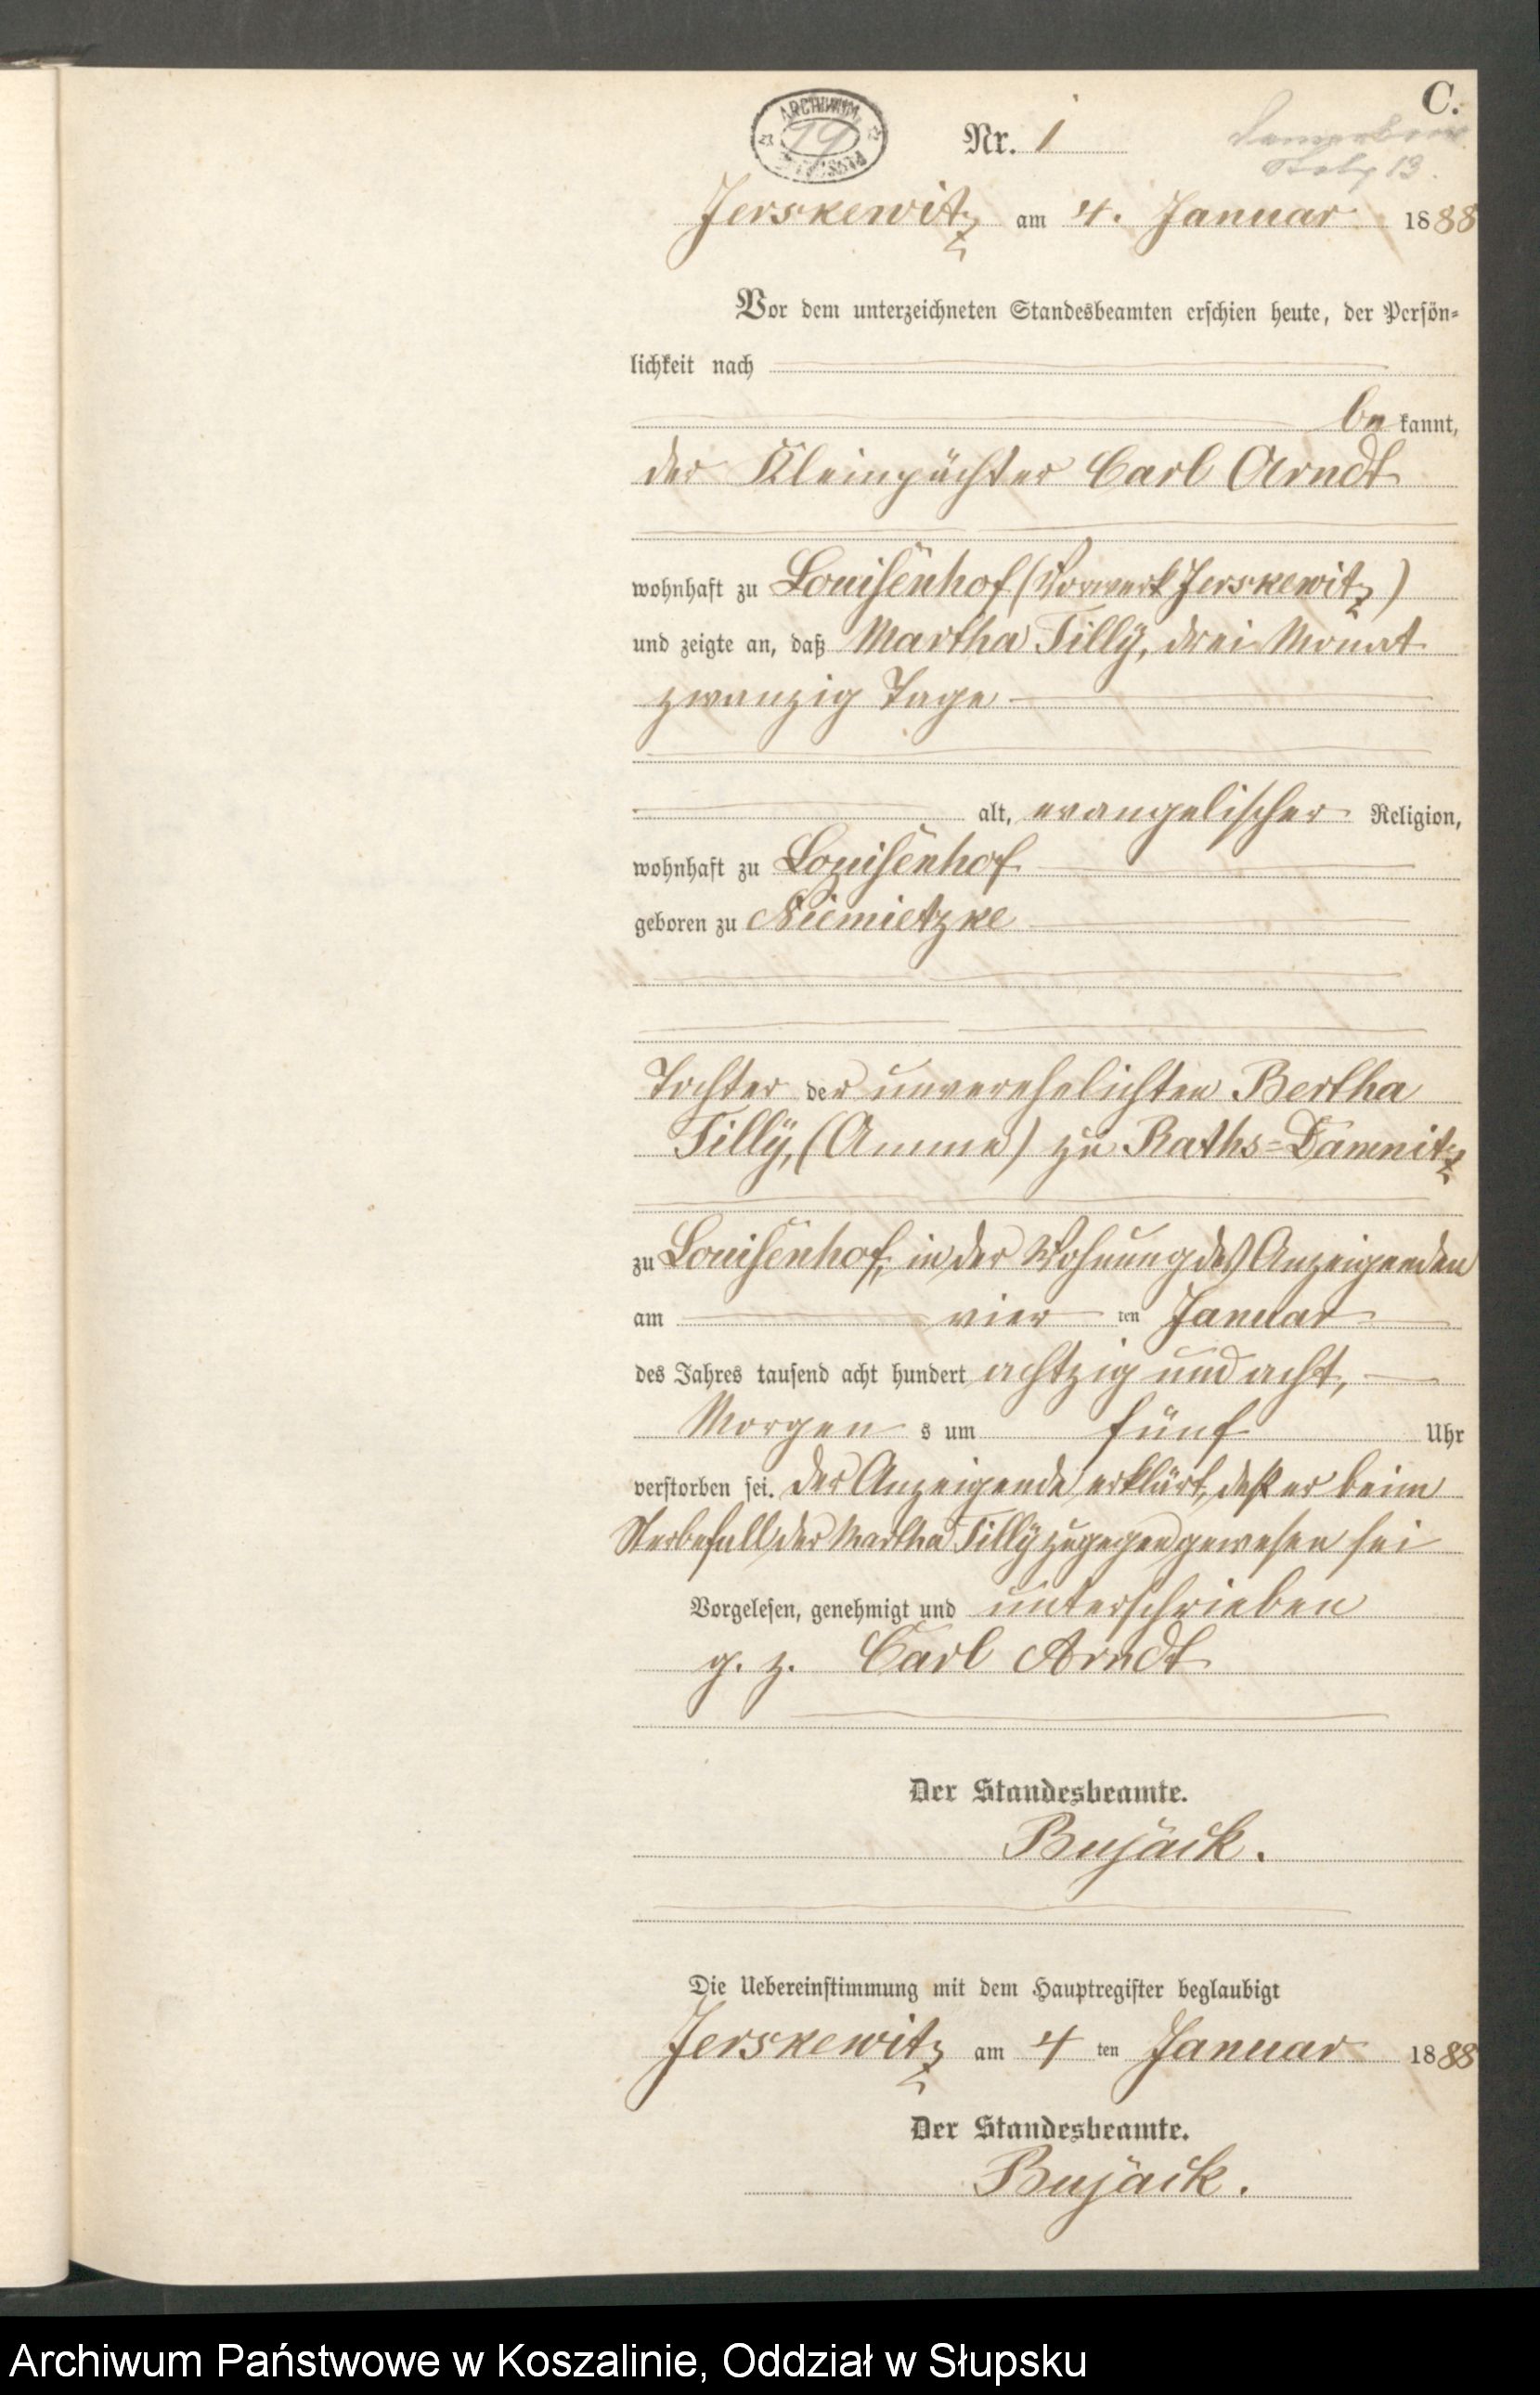 C.
ARCHIWUM
19
Nr. 1
Stolp 13.
Jerskewitz am 4. Januar 1888
Vor dem unterzeichneten Standesbeamten erschien heute, der Persön-
lichkeit nach
be kannt,
der Kleinpächter Carl Arndt
wohnhaft zu Louisenhof (Vorwerk Jerskewitz)
und zeigte an, daß Martha Tilly, drei Monat
zwanzig Tage
alt, evangelischer Religion,
wohnhaft zu Louisenhof
geboren zu Niemietzke
Tochter der unverehelichten Bertha
Tilly, (Amme) zu Raths-Damnitz
zu Louisenhof, in der Wohnung des Anzeigenden
am vier ten Januar
des Jahres tausend acht hundert achtzig und acht,
Morgen s um fünf Uhr
verstorben sei. der Anzeigende erklärt, daß er beim
Sterbefall der Martha Tilly zugegen gewesen sei
Vorgelesen, genehmigt und unterschrieben
g. z. Carl Arndt
Der Standesbeamte.
Bujack.
Die Uebereinstimmung mit dem Hauptregister beglaubigt
Jerskewitz am 4 ten Januar 1888
Der Standesbeamte.
Bujack.
Archiwum Państwowe w Koszalinie, Oddział w Słupsku